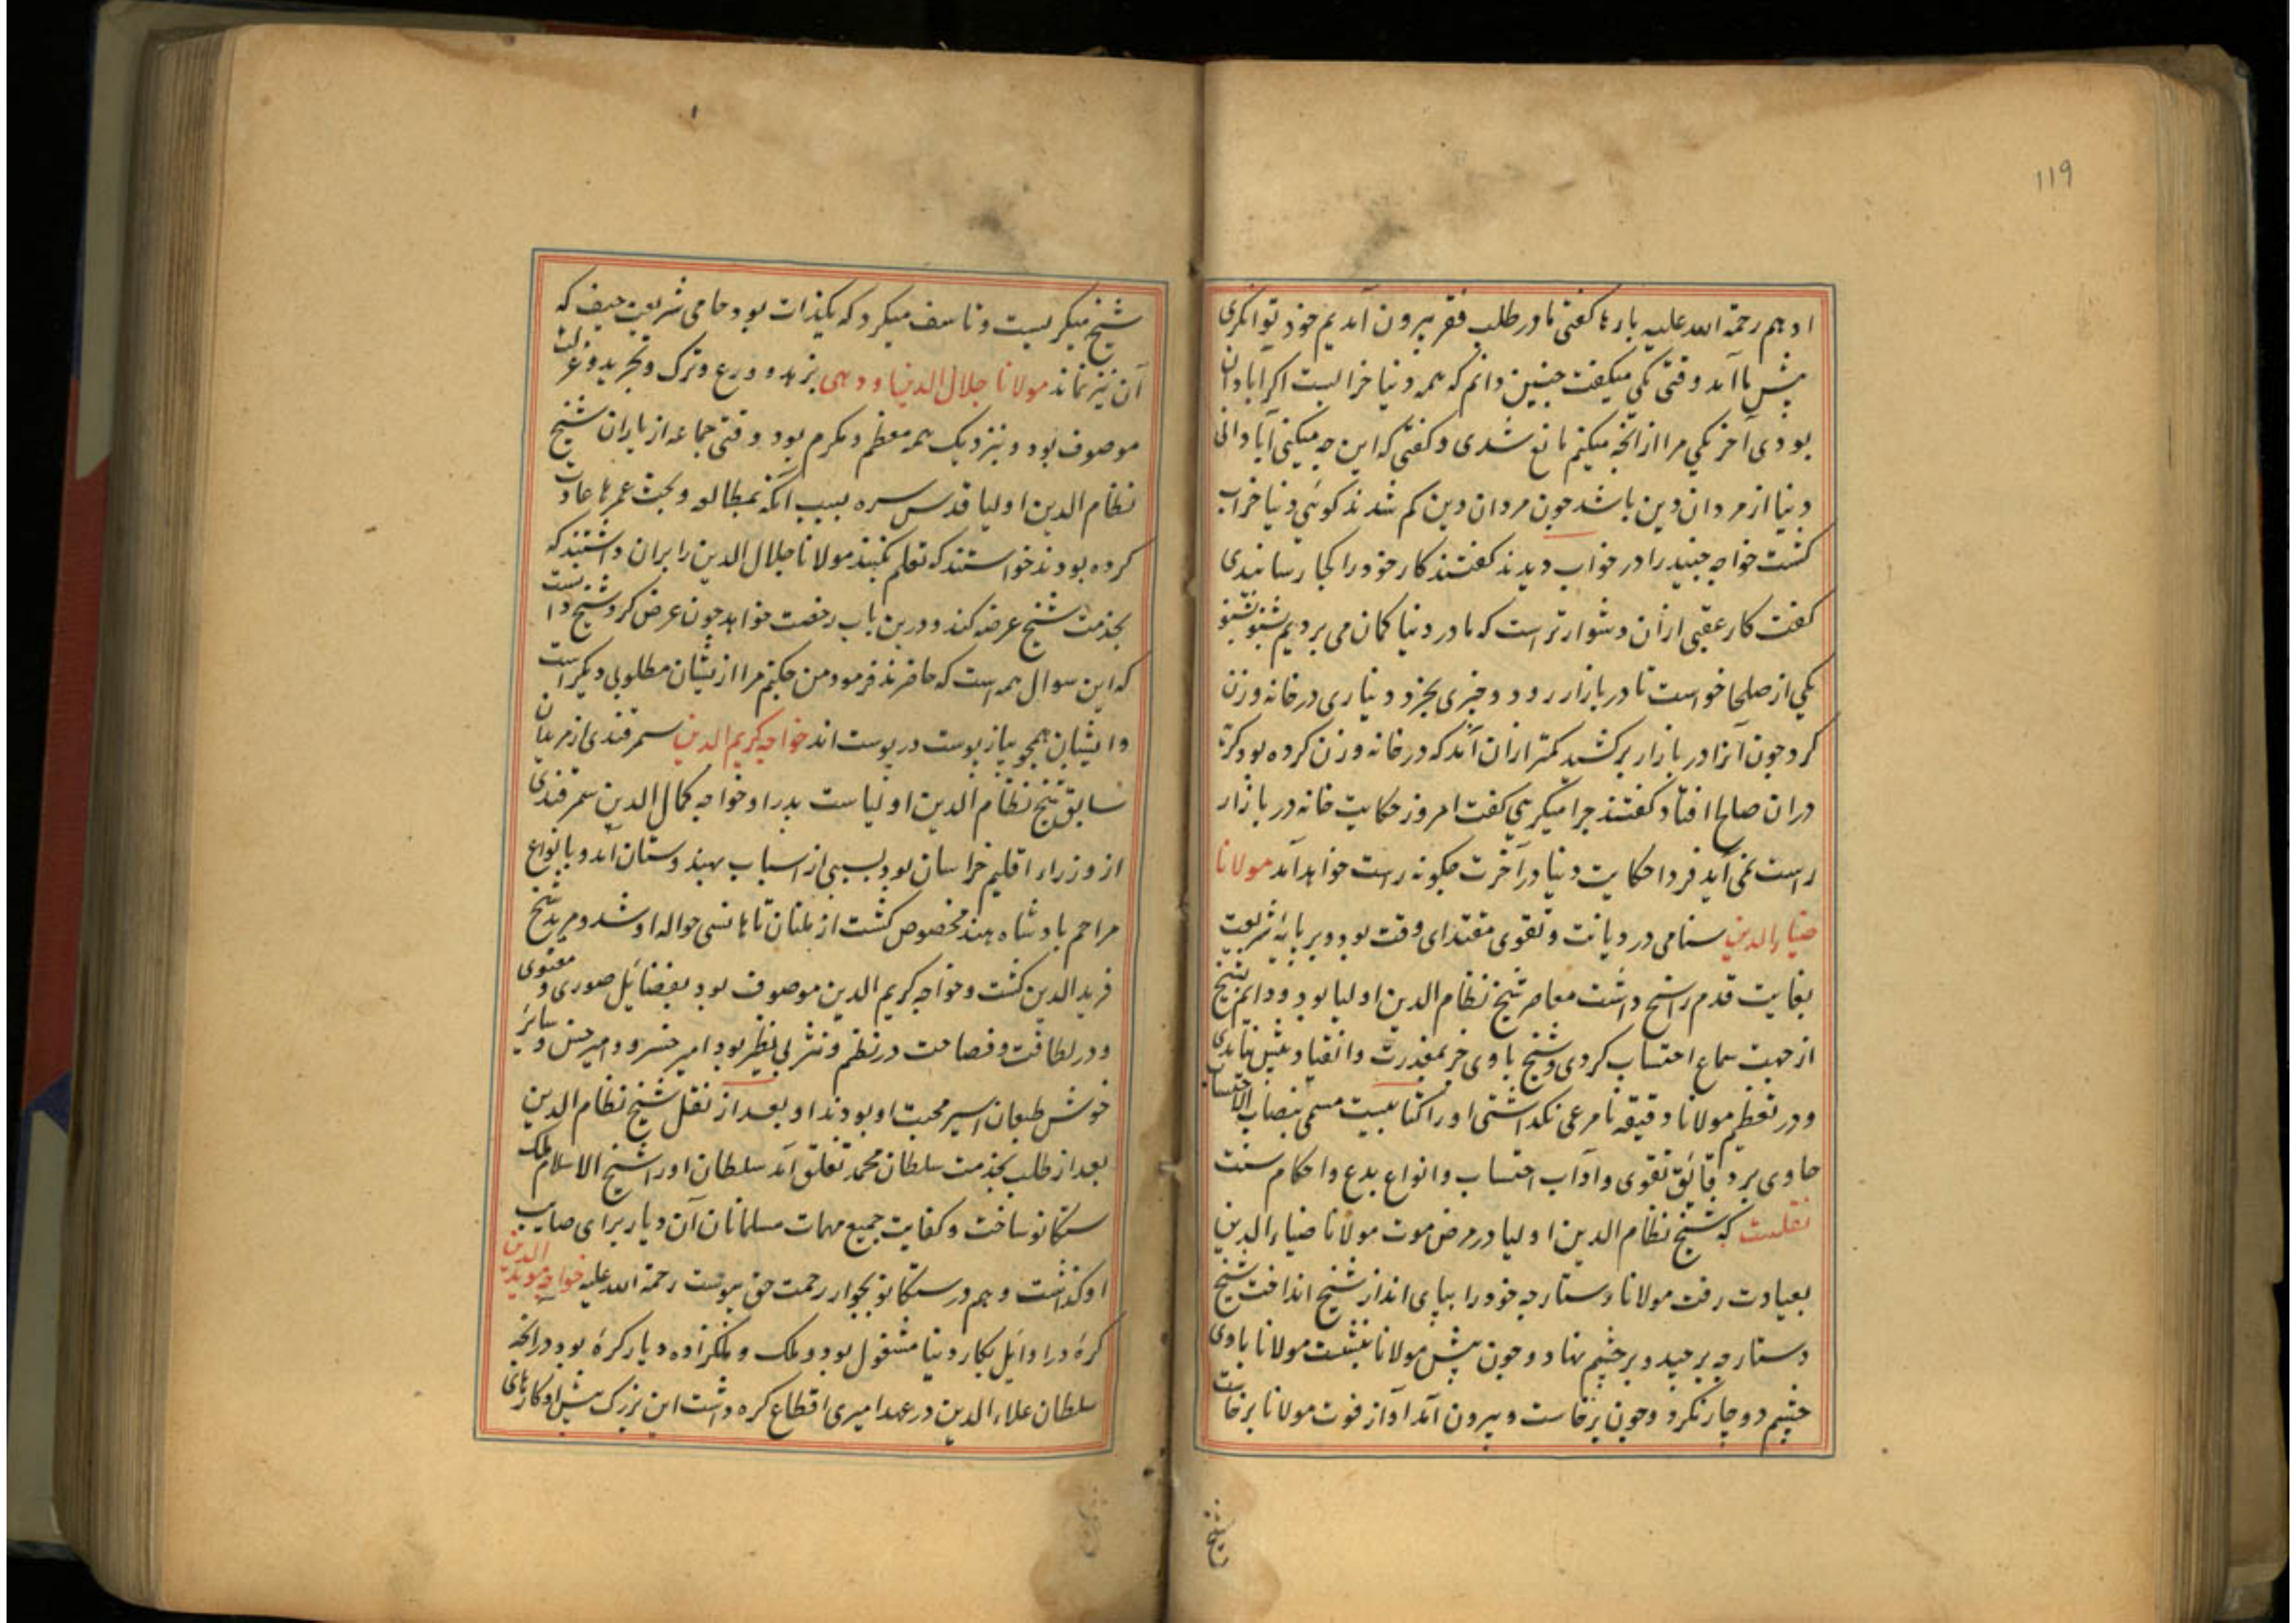 119
ادهم رحمة الله علیه بارها کفتی ما در طلب فقر بیرون آمدیم خود توانکری
پیش ما آمد وقتی یکی میکفت چنین دانم که همه دنیا خرابست اکر آبادان
بودی آخر یکی مرا از انچه میکنم مانع شدی و کفتی که این چه میکنی آبادانی
دنیا از مردان دین باشد چون مردان دین کم شدند کوئی دنیا خراب
کشت خواجه جنید را در خواب دیدند کفتند کار خود را کجا رسانیدی
کفت کار عقبی ازان دشوارتر است که ما در دنیا کمان می بردیم
یکی از صلحا خواست تا در بازار رود و چیزی بخرد دیناری در خانه وزن
کرد چون آنرا در بازار برکشید کمتر ازان آمد که در خانه وزن کرده بود کریه
دران صالح افتاد کفتند چرا میکریی کفت امروز حکایت خانه در بازار
راست نمی آید فردا حکایت دنیا در آخرت چکونه راست خواهد آمد مولانا
ضیاء الدین سنامی در دیانت و تقوی مقتدای وقت بود و بر پایه شریعت
بغایت قدم راسخ داشت معاصر شیخ نظام الدین اولیا بود و دایم بشیخ
از جهت سماع احتساب کردی و شیخ با وی جز بمعذرت و انقیاد پیش نیامدی
و در تعظیم مولانا دقیقه نامرعی نکذاشتی او را کتابیست مسمی بنصاب الاحتساب
حاوی بر دقایق تقوی و آداب احتساب و انواع بدع و احکام سنت
نقلست که شیخ نظام الدین اولیا در مرض موت مولانا ضیاء الدین
بعیادت رفت مولانا دستارچه خود را بپای انداز شیخ انداخت شیخ
دستارچه برچید و بر چشم نهاد و چون پیش مولانا بنشست مولانا با وی
چشم دوچار نکرد و چون برخاست و بیرون آمد آواز فوت مولانا برخاست
شیخ
شیخ میکریست و تاسف میکرد که یکذات بود حامی شریعت حیف که
آن نیز نماند مولانا جلال الدین اودهی بزهد و ورع و ترک و تجرید و عزلت
موصوف بود و بنزدیک همه معظم و مکرم بود وقتی جماعه از یاران شیخ
نظام الدین اولیا قدس سره بسبب آنکه بمطالعه و بحث عمرها عادت
کرده بودند خواستند که تعلم کنند مولانا جلال الدین را بران داشتند که
بخدمت شیخ عرضه کند و درین باب رخصت خواهد چون عرض کرد شیخ دانست
که این سوال همه است که حاضرند فرمود من چکنم مرا از یشان مطلوبی دیکر است
و ایشان همچو پیاز پوست در پوست اند خواجه کریم الدین سمرقندی از مریدان
سابق شیخ نظام الدین اولیاست پدر او خواجه کمال الدین سمرقندی
از وزراء اقلیم خراسان بود بسببی از اسباب بهندوستان آمد و بانواع
مراحم بادشاه هند مخصوص کشت از ملتان تا هانسی حواله او شد و مرید شیخ
فرید الدین کشت و خواجه کریم الدین موصوف بود بفضائل صوری و معنوی
و در لطافت و فصاحت در نظم و نثر بی نظیر بود امیر خسرو و امیر حسن و سائر
خوش طبعان اسیر محبت او بودند او بعد از نقل شیخ نظام الدین
بعد از طلب بخدمت سلطان محمد تغلق آمد سلطان او را شیخ الاسلام ملک
ستکانو ساخت و کفایت جمیع مهمات مسلمانان آن دیار برای صایب
او کذاشت و هم در ستکانو بجوار رحمت حق پیوست رحمة الله علیه خواجه موید الدین
کره در اوایل بکار دنیا مشغول بود و ملک و ملکزاده دیار کره بود درانچه
سلطان علاء الدین در عهد امیری اقطاع کره داشت این بزرک پیش او کارهای